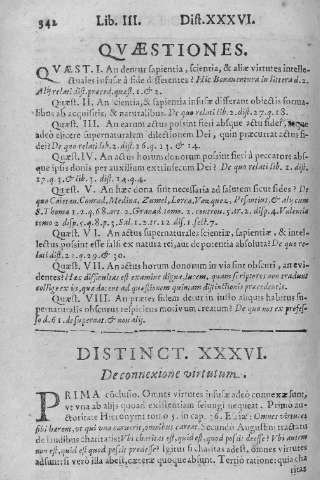 342 Lib. III. Dist. XXXVI.
QVÆSTIONES.
QVÆST. I. An dentur sapientia, scientia, & aliæ virtutes intelle-
ctuales infusæ à fide differentes? Hic Bonauentura in littera d. 2.
Alij relati dist. præced. quæst. 1. & 2.
Quæst. II. An scientia, & sapientia infusæ differant obiectis forma-
libus ab acquisitis, & naturalibus. De quo relati lib. 2. dist. 27. q. 18.
Quæst. III. An earum actus possint fieri absque actu fidei, neque
adeò elicere supernaturalem dilectionem Dei, quin præcurrat actus fi-
dei? De quo relati lib. 2. dist. 26. q. 13. & 14.
Quæst. IV. An actus horum donorum possint fieri à peccatore abs-
que ipsis donis per auxilium extrinsecum Dei? De quo relati lib. 2. dist.
27. q. 3. & lib. 3. dist. 14. q. 4.
Quæst. V. An hæc dona sint necessaria ad salutem sicut fides? De
quo Caietan. Conrad, Medina, Zumel, Lorca, Vazquez, & alij cum
S. Thoma 1. 2. q. 68. art. 2. Granad. tom. 2. controu. 3. tr. 2. disp. 4. Valentia
tomo 2. disp. 5. q. 8. p. 3. Sal. 1. 2. tr. 12. disp. 1. sect. 7.
Quæst. VI. An actus supernaturales scientiæ, sapientiæ, & intel-
lectus possint esse falsi ex natura rei, aut de potentia absoluta? De quo re-
lati dist. 20. q. 29. & 30.
Quæst. VII. An actus horum donorum in via sint obscuri, an evi-
dentes? Hec difficultas est examine digna. tamen, quam scriptores non tradunt
collige ex ijs, quæ docent ad quæstionem quintam distinctionis præcedentis.
Quæst. VIII. An præter fidem detur in iusto aliquis habitus su-
pernaturalis obscurus respiciens motivum creatum? De quo nos ex profes-
so d. 61. de supernat. & nos alij.
DISTINCT. XXXVI.
De connexione virtutum.
PRIMA cõclusio. Omnes virtutes infusæ adeò connexæ sunt,
vt vna ab alijs quoad existentiam seiungi nequeat. Primò au-
ctoritate Hieronymi tomo 5. in cap. 56. Esaiæ: Omnes virtutes
sibi hærent, vt qui vna caruerit, omnibus careat. Secundo Augustini tractatu
de laudibus charitatis: Vbi charitas est, quid est, quod possit deesse? Vbi autem
non est, quid est, quod possit prodesse? Igitur si charitas adest, omnes virtutes
adsunt: si verò illa abest, cæteræ quoque absunt. Tertiò ratione: quia cha
ritas